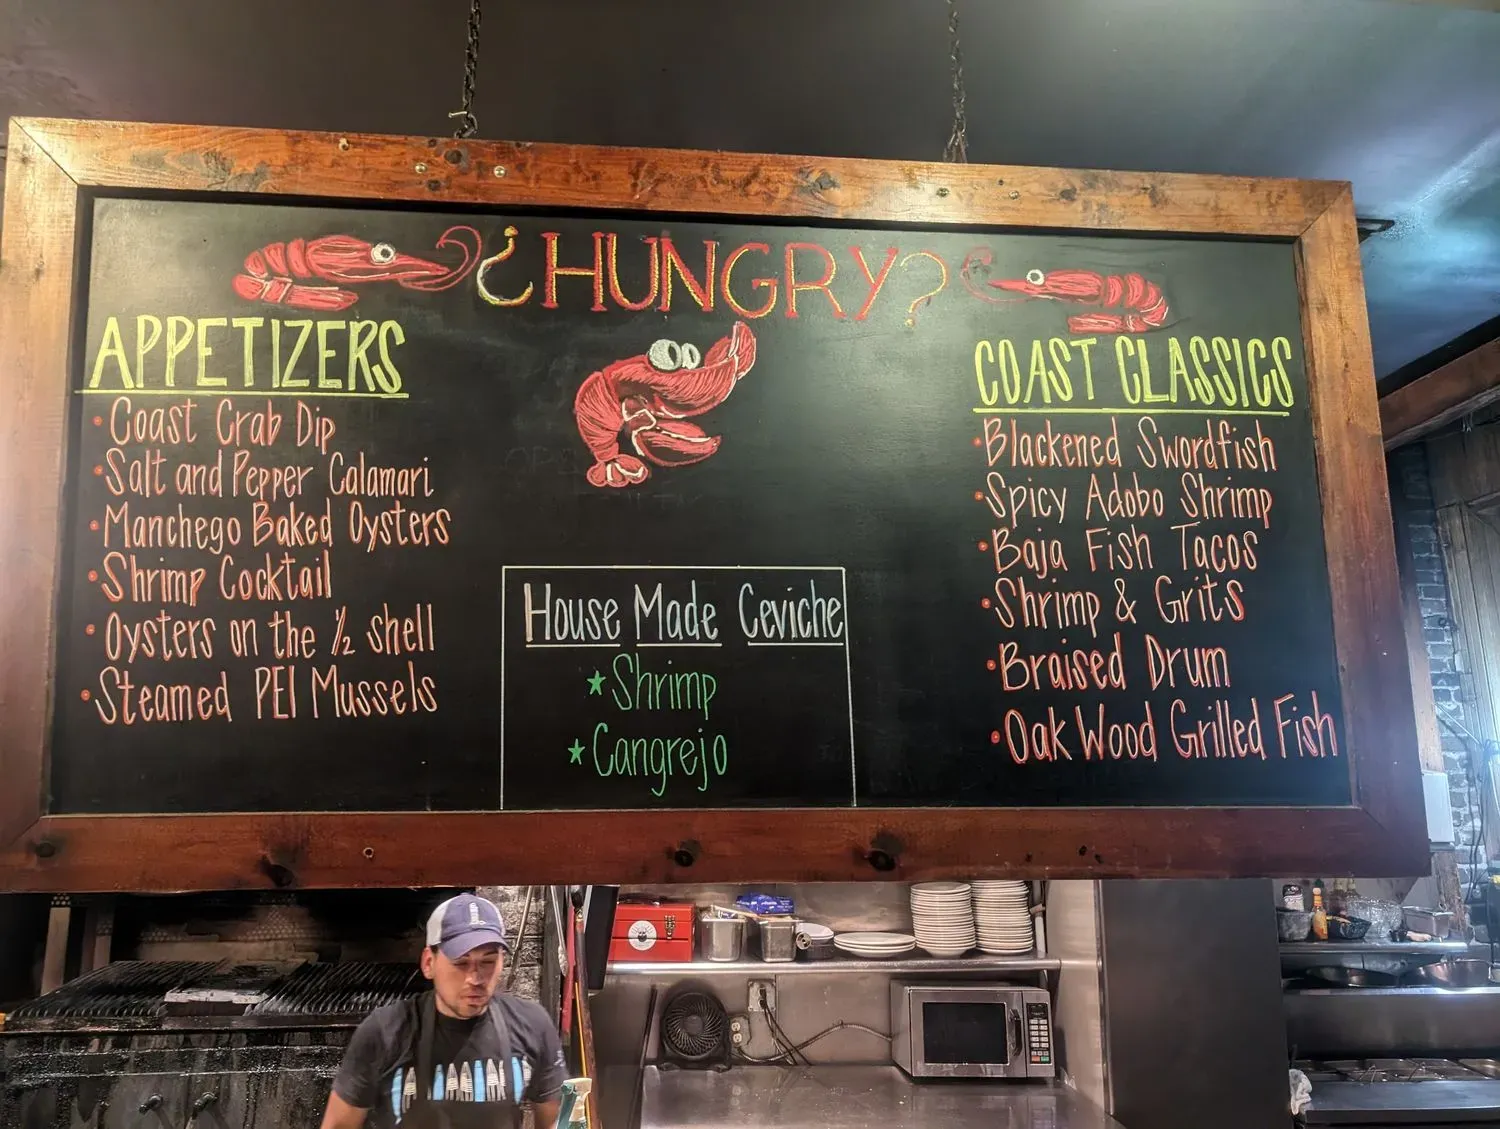 ¿HUNGRY?
APPETIZERS
• Coast Crab Dip
• Salt and Pepper Calamari
• Manchego Baked Oysters
• Shrimp Cocktail
• Oysters on the ½ shell
• Steamed PEI Mussels
House Made Ceviche
★ Shrimp
★ Cangrejo
COAST CLASSICS
• Blackened Swordfish
• Spicy Adobo Shrimp
• Baja Fish Tacos
• Shrimp & Grits
• Braised Drum
• Oak Wood Grilled Fish